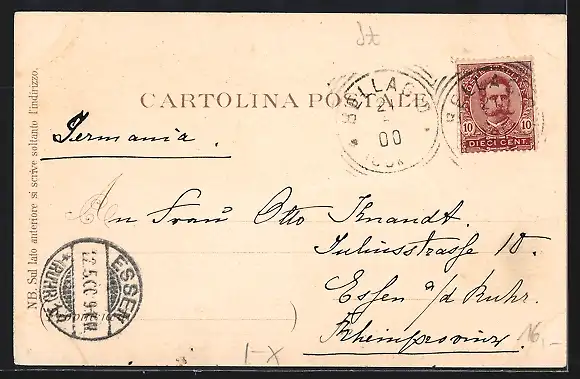 It
BELLAGIO
21
00
10
10
DIECI CENT.
CARTOLINA POSTALE
Germania.
NB. Sul lato anteriore si scrive soltanto l'indirizzo.
An Frau Otto Knandt.
Juliusstrasse 10.
Essen a/d Ruhr.
Rheinprovinz
ESSEN
(RUHR)
1-X
16,-